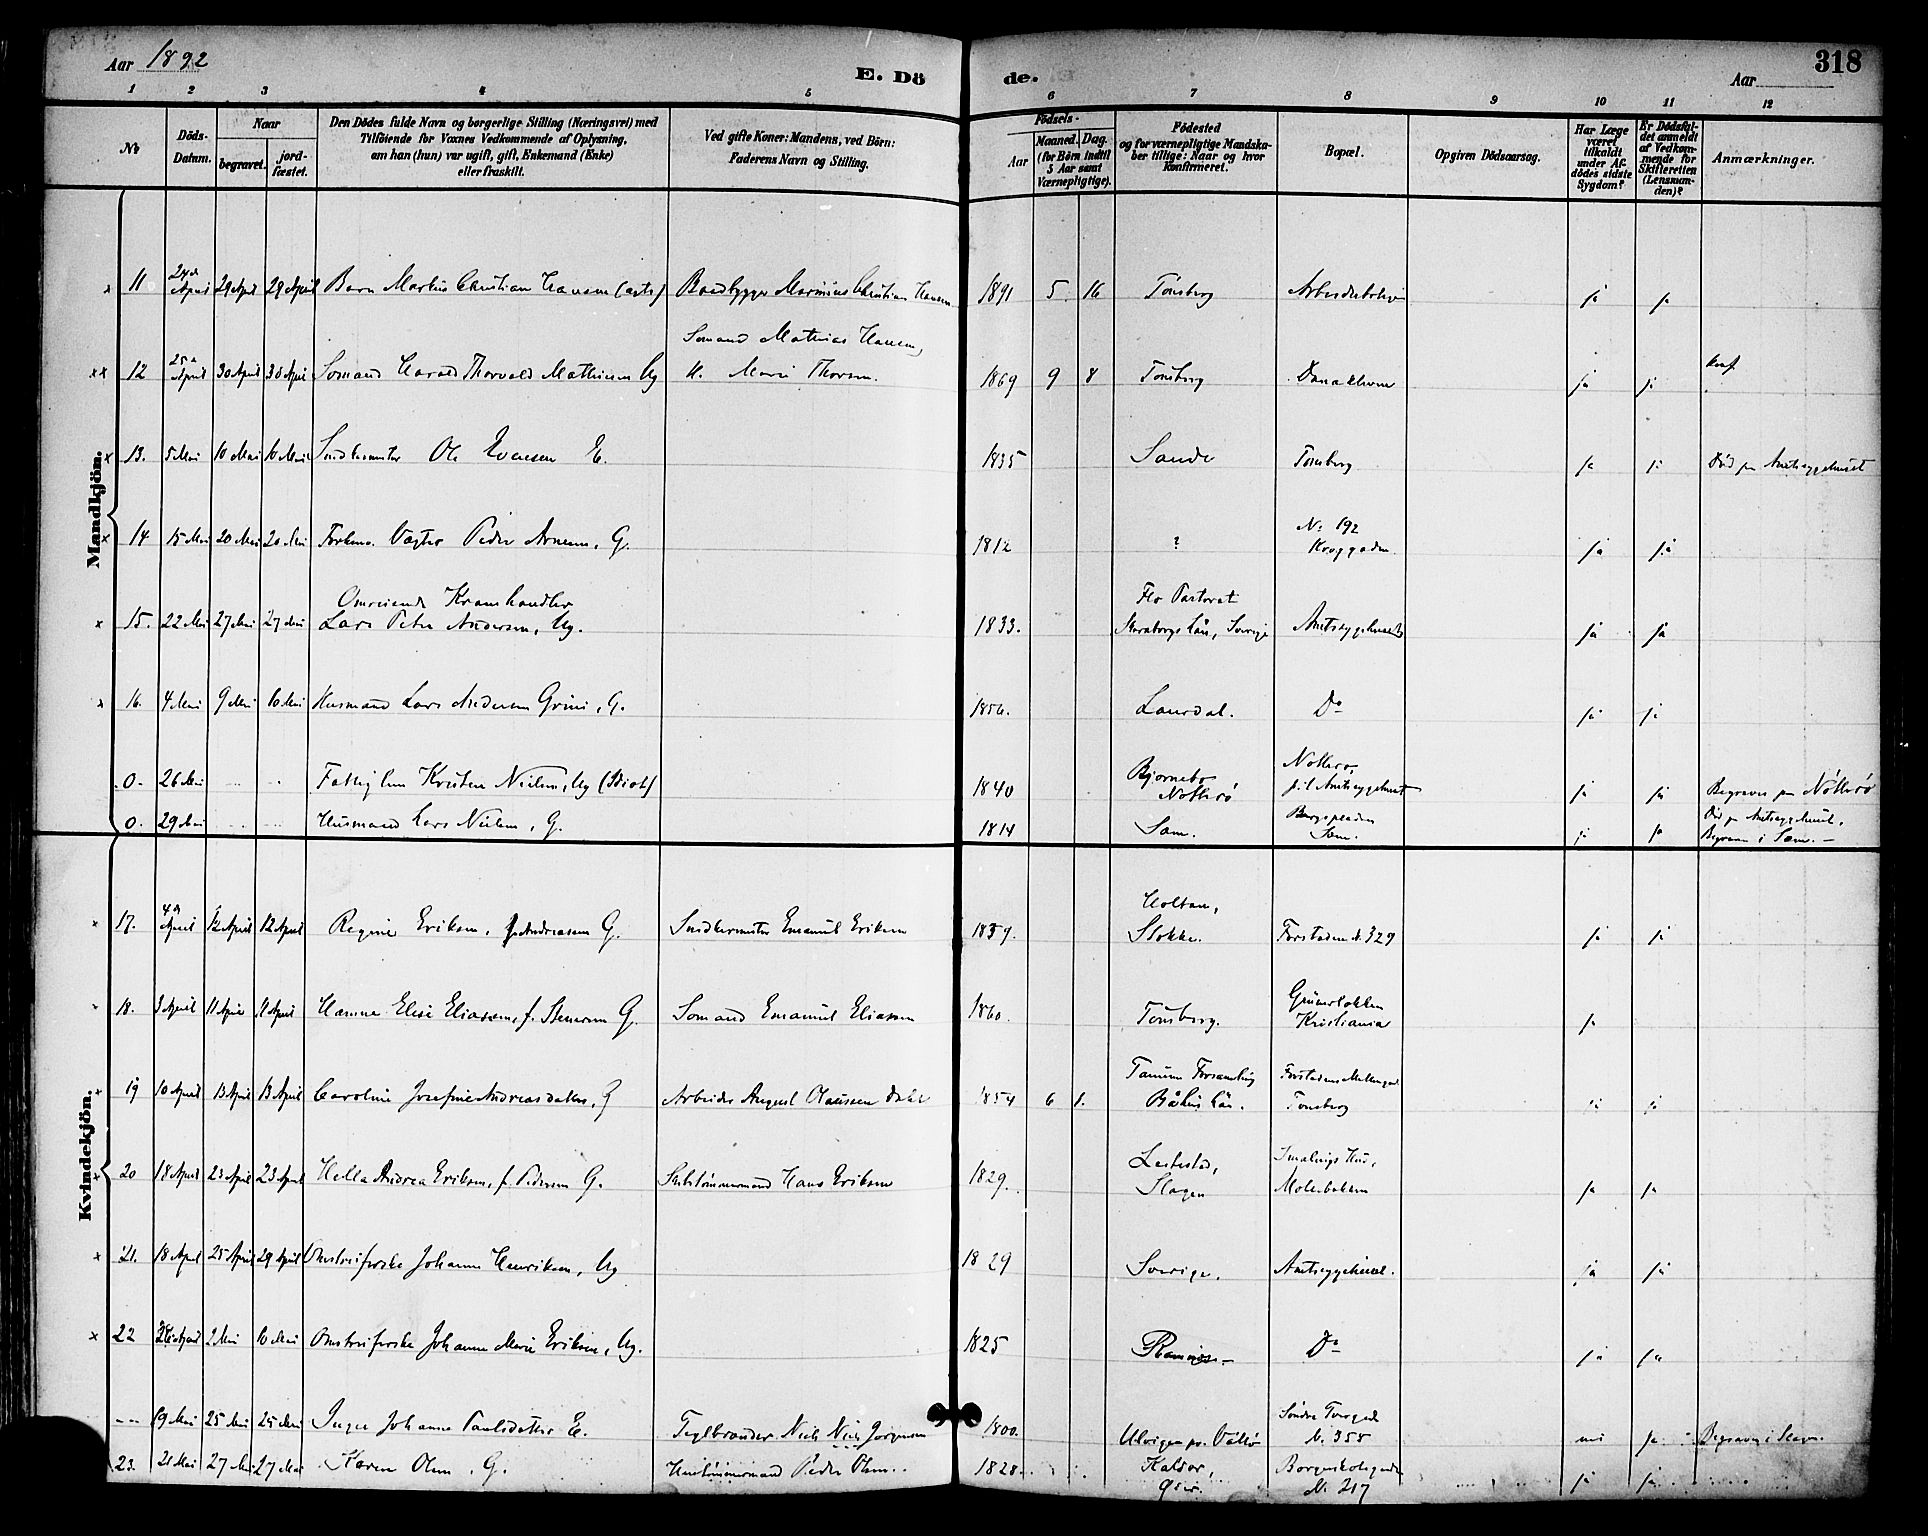 Aar 1892
E. Dö
de.
Aar
318
1 2 3 4 5 6 7 8 9 10 11 12
No
Döds-
Datum.
Naar
begravet.
jord-
fæstet.
Den Dödes fulde Navn og borgerlige Stilling (Næringsvei) med
Tilföiende for Voxnes Vedkommende af Oplysning,
om han (hun) var ugift, gift, Enkemand (Enke)
eller fraskilt.
Ved gifte Koner: Mandens, ved Börn:
Faderens Navn og Stilling.
Födsels-
Aar
Maaned. Dag.
(for Börn indtil
5 Aar samt
Værnepligtige).
Födested
og for værnepligtige Mandska-
ber tillige: Naar og hvor
konfirmeret.
Bopæl.
Opgiven Dödsaarsag.
Har Læge
været
tilkaldt
under Af-
dödes sidste
Sygdom?
Er Dödsfal-
det anmeldt
af Vedkom-
mende for
Skifteretten
(Lensman-
den)?
Anmærkninger.
Mandkjön.
x 11 24de April 29 April 29 April Barn Martin Christian Hansen (ægte) Baadbygger Marinius Christian Hansen 1891 5. 16 Tönsberg ja ja
Sömand Mathias Hansen,
xx 12 25de April 30 April 30 April Sömand Harald Thorvald Mathiesen Ug H. Marie Thorsen. 1869 9 8 Tönsberg ja ja
x 13. 5 Mai 10 Mai 10 Mai Ole Evensen E. 1835 Sande Tönsberg ja ja Död paa Amtssygehuset
x 14 15 Mai 20 Mai 20 Mai Vægter Peder Arnesen, G. 1812 ? N: 192 ja ja
Omreisende Kramhandler
x 15. 22 Mai 27 Mai 27 Mai Lars Peter Andersen, Ug. 1833. Skaraborgs Län, Sverige Amtssygehuset ja ja
x 16. 4 Mai 9 Mai 10 Mai Husmand Lars Andersen Grini, G. 1856. Laurdal. Do ja ja
0. 26 Mai Kristen Nielsen, Ug (Idiot) 1840 Nötterö Nötterö, p.t. Amtssygehuset ja ja Begraves paa Nötterö
0. 29 Mai Husmand Lars Nielsen, G. 1814 Sem. Sem. ja ja Död paa Amtssygehuset.
Begraves i Sem. –
Kvindekjön.
x 17. 4de April 12 April 12 April Regine Eriksen, f. Andreassen G. Snedkermester Emanuel Eriksen 1839. Stokke. Forstaden N. 329 ja ja
18. 3 April 11 April 11 April Hanna Elise Eliassen, f. Stenersen G. Sömand Emanuel Eliassen 1860. Tönsberg. Grünerlökken
Kristiania ja
x 19 10 April 13 April 13 April Caroline Josefine Andreasdatter, G Arbeider August Olaussen Dahl 1854 6 1. Tanum Forsamling
Båhus Län. Tönsberg ja ja
x 20 18 April 23 April 23 April Hella Andrea Eriksen, f. Pedersen G. Skibstömmermand Hans Eriksen 1829. Slagen Molebakken ja ja
x 21. 18 April 25 April 29 April Johanne Henriksen, Ug 1829 Sverige. Amtssygehuset. ja ja
x 22 2 Mai 10 Mai Johanne Marie Eriksen, Ug. 1825 Ramnes – Do ja ja
-- 19 Mai 25 Mai 25 Mai Inger Johanne Paulsdatter E. Teglbrænder Niels Jörgensen 1800. N. 358 nei ja Begraven i Slagen.
23. 21 Mai 27 Mai 27 Mai Karen Olsen, G. Hustömmermand Peder Olsen. 1828. N. 217 ja ja